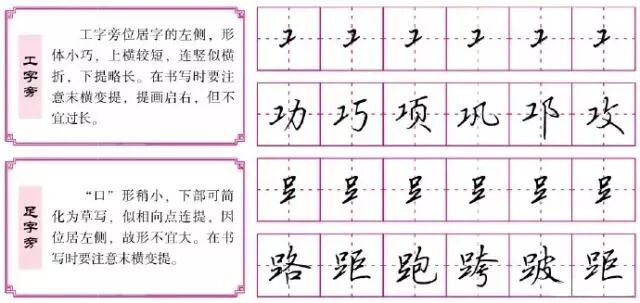 工字旁
工字旁位居字的左侧，形
体小巧，上横较短，连竖似横
折，下提略长。在书写时要注
意末横变提，提画启右，但不
宜过长。
功 巧 项 巩 邛 攻
足字旁
“口”形稍小，下部可简
化为草写，似相向点连提，因
位居左侧，故形不宜大。在书
写时要注意末横变提。
路 距 跑 跨 跛 距